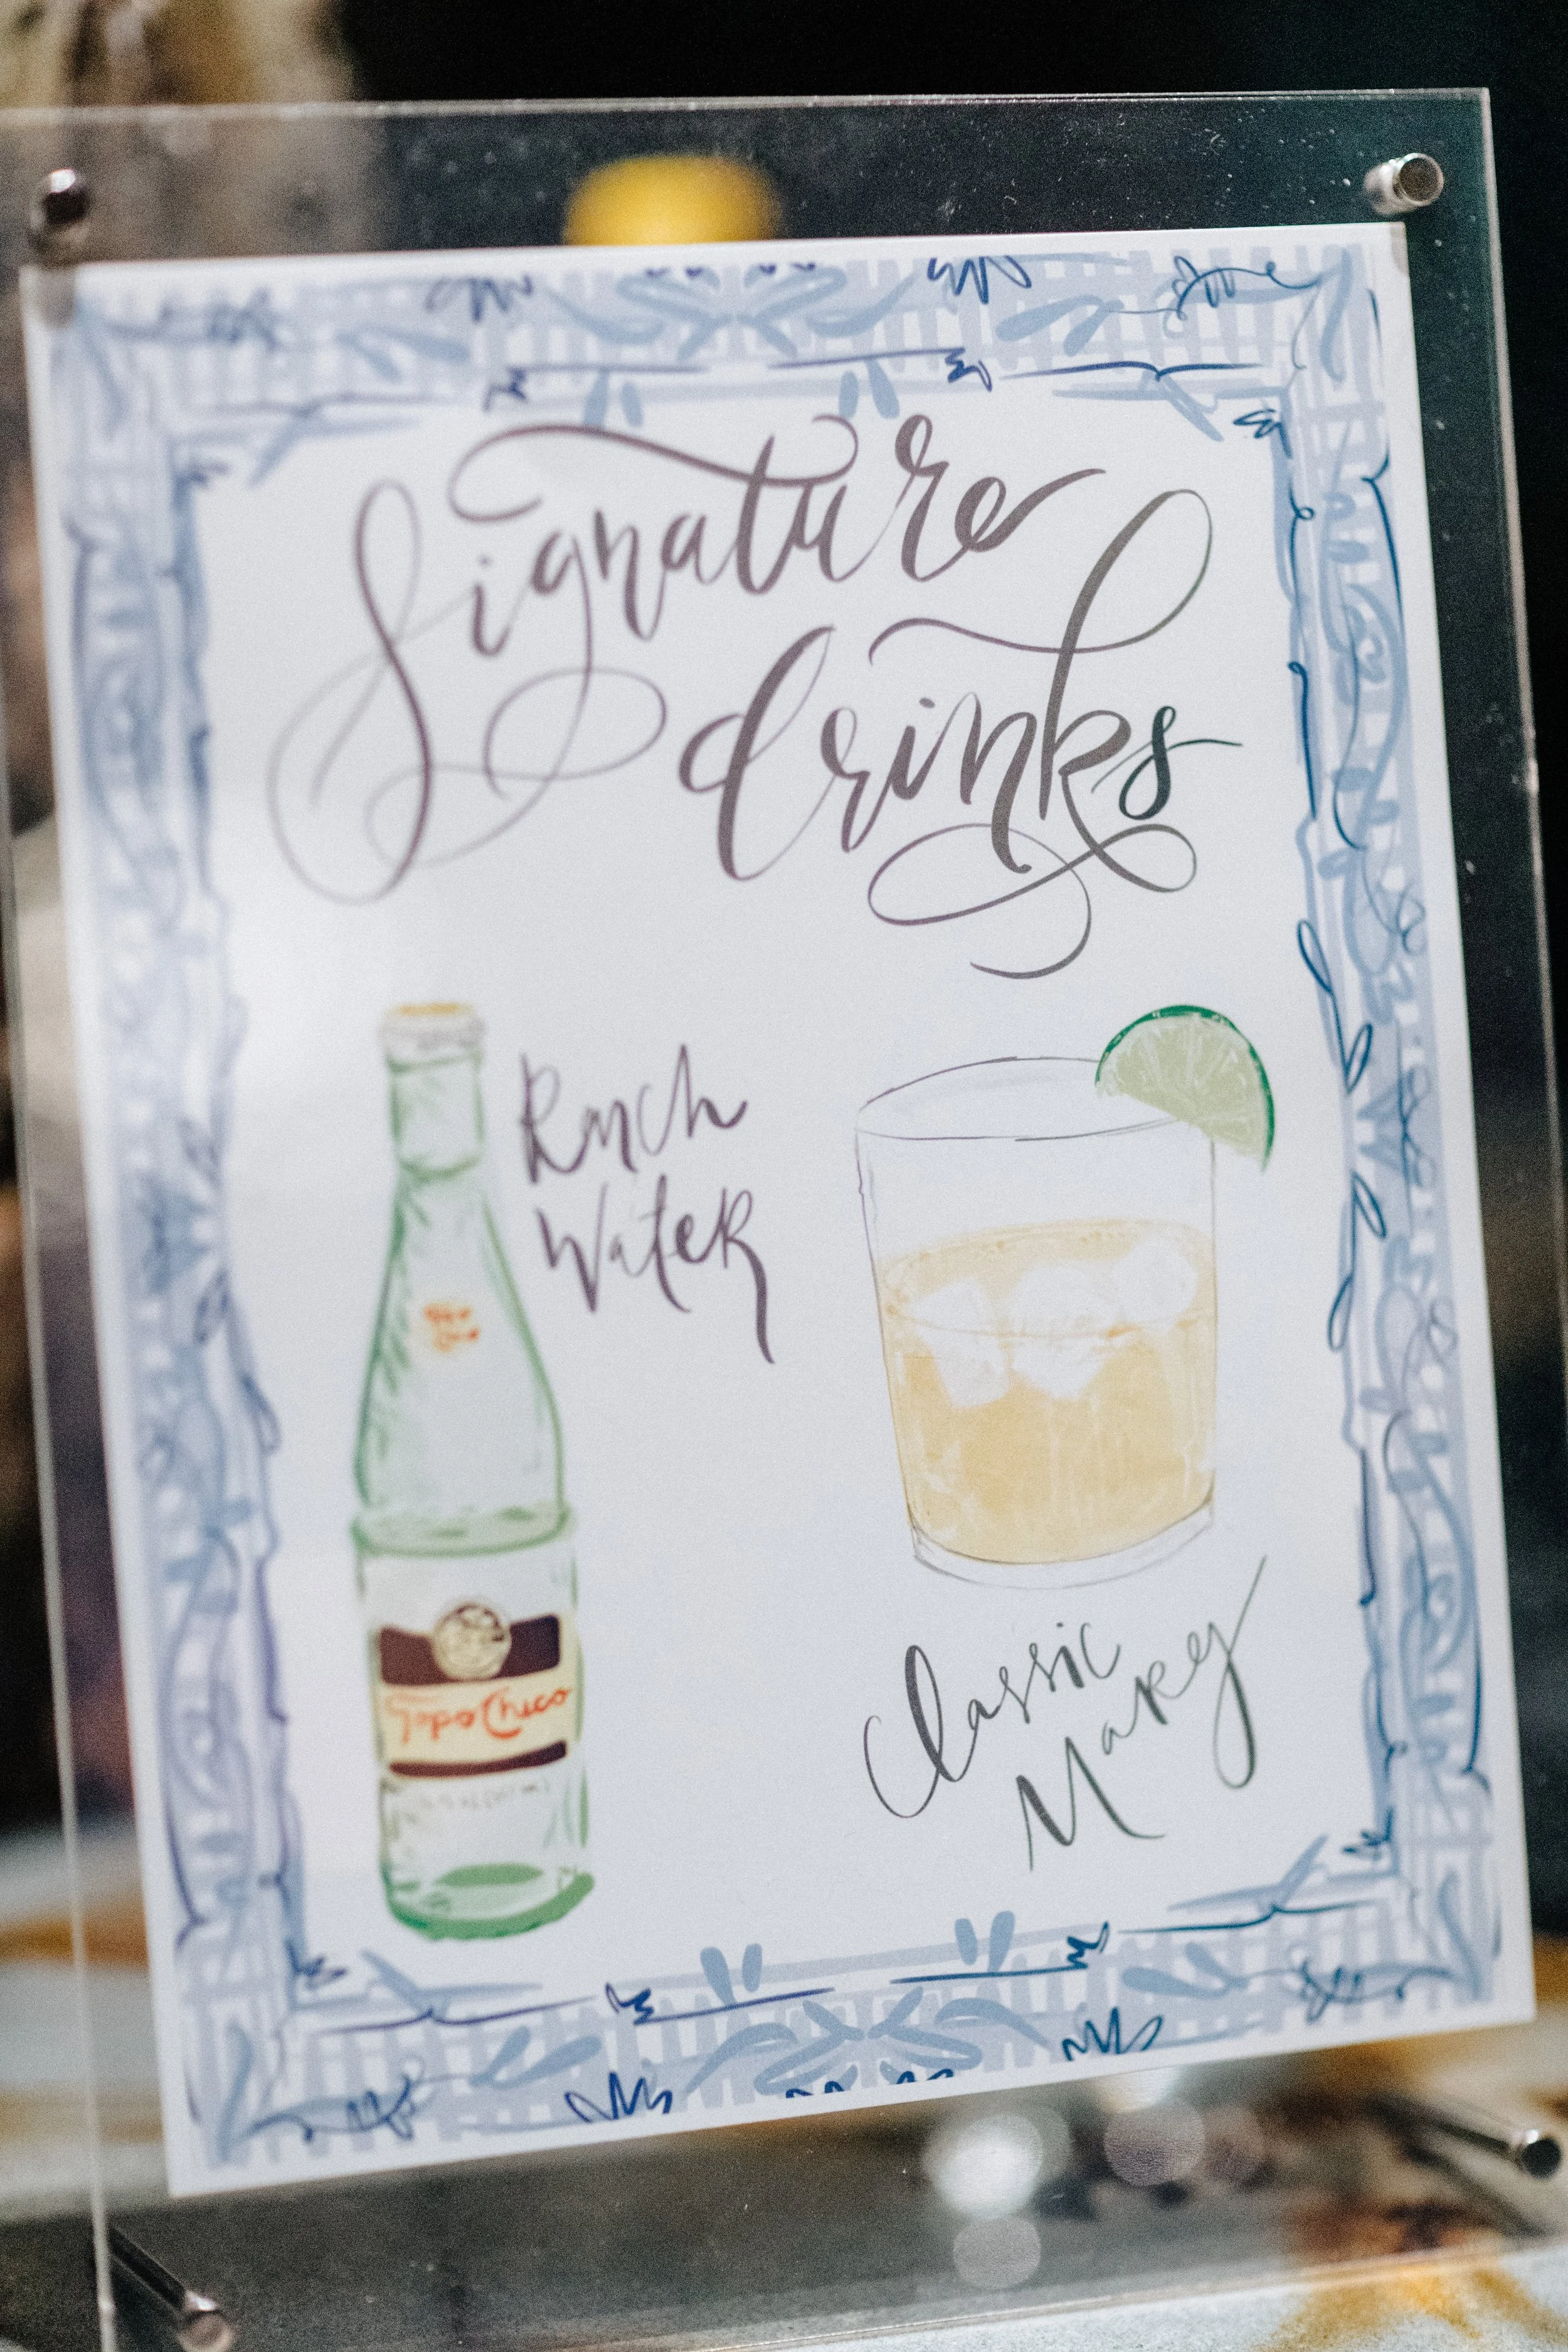 Signature
drinks
Ranch
Water
Topo Chico
Classic
Marg